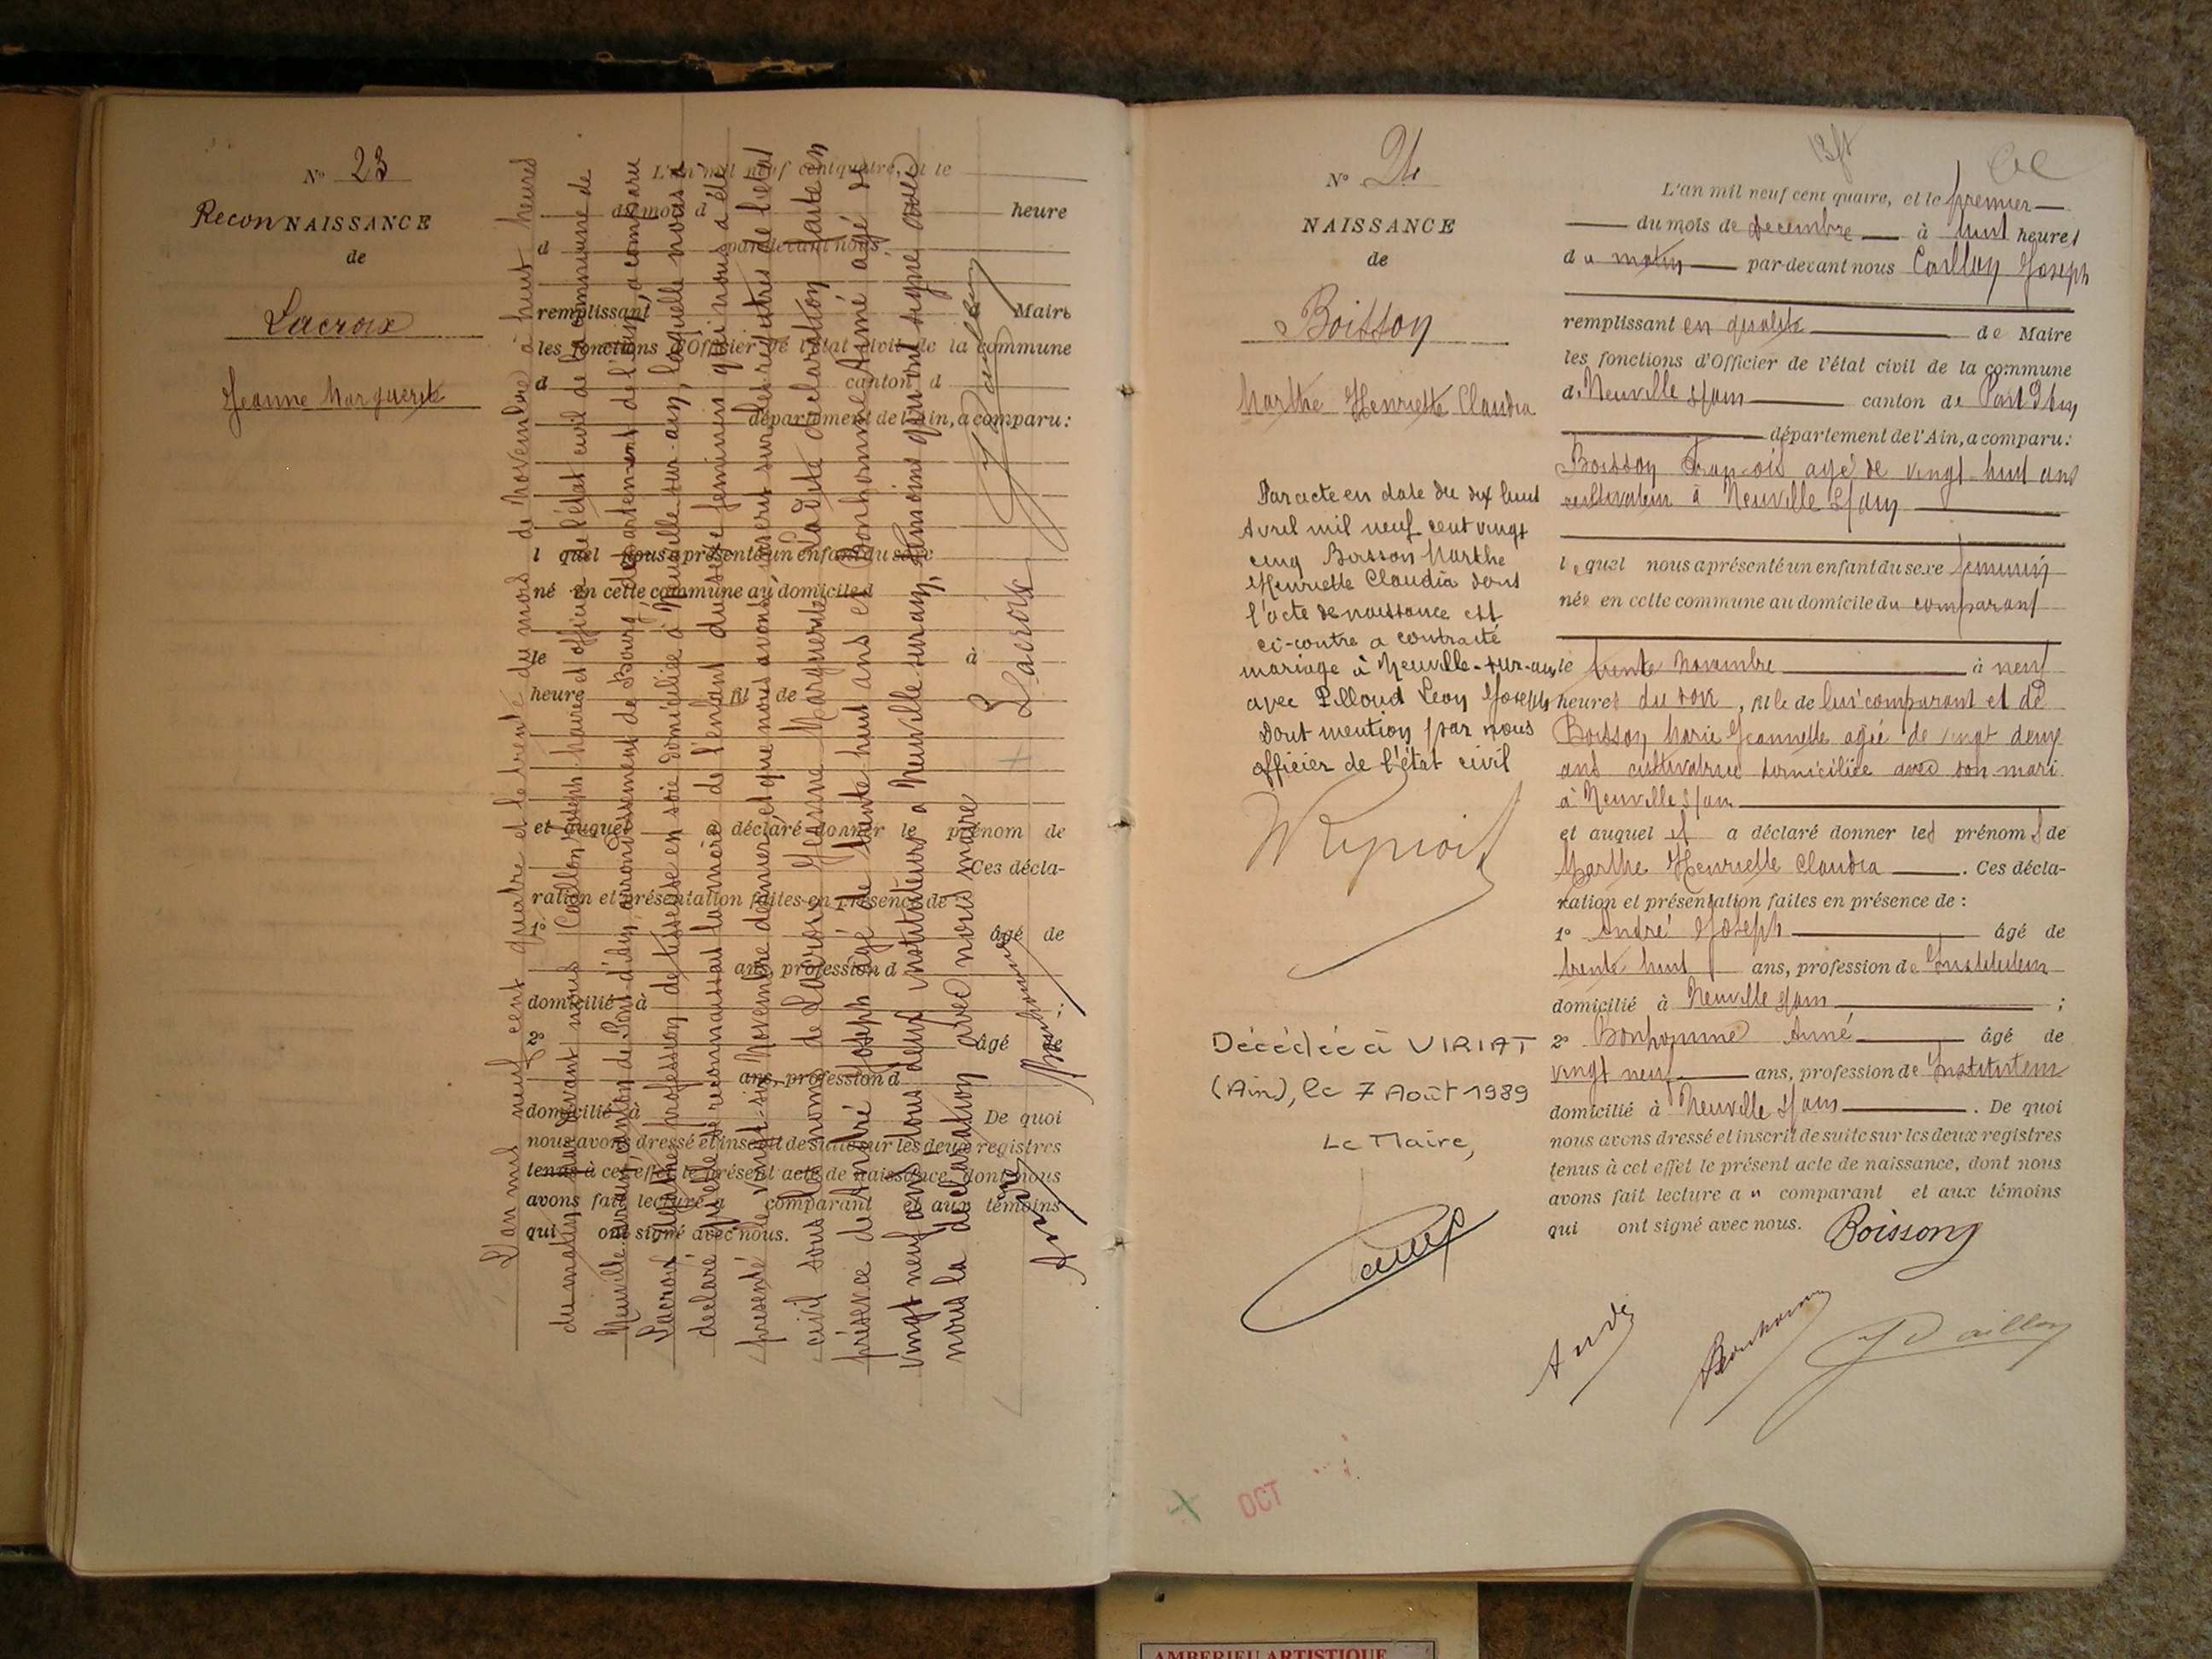 N° 23
ReconNAISSANCE
de
Lacroix
Jeanne Marguerite
L'an mil neuf cent quatre, et le
du mois d
heure
d par-devant nous
remplissant Maire
les fonctions d'Officier de l'état civil de la commune
d canton d
département de l'Ain, a comparu:
l quel nous a présenté un enfant du sexe
né en cette commune au domicile d
le à
heure fil de
et auquel a déclaré donner le prénom de
Ces décla-
ration et présentation faites en présence de:
1° âgé de
ans, profession d
domicilié à ;
2° âgé de
ans, profession d
domicilié à De quoi
nous avons dressé et inscrit de suite sur les deux registres
tenus à cet effet le présent acte de naissance, dont nous
avons fait lecture a comparant et aux témoins
qui ont signé avec nous.
L'an mil neuf cent quatre et le trente du mois de Novembre à huit heures
du matin par devant nous Caillon Joseph Maire et officier de l'état civil de la commune de
Neuville sur ain, canton de Pont d'ain, arrondissement de Bourg, département de l'ain, a comparu
Lacroix profession de tisseuse en soie domiciliée à Neuville sur ain, laquelle nous a
déclaré qu'elle se reconnaissait la mère de l'enfant du sexe féminin qui nous a été
présenté le vingt-six Novembre dernier, et que nous avons inscrit sur les registres de l'état
civil sous le nom de Lacroix Jeanne Marguerite. La dite déclaration faite en
présence de André Joseph âgé de trente huit ans et Bonhomme Aimé âgé de
vingt neuf ans, tous deux instituteurs a Neuville sur ain, témoins qui ont signé avec
nous la déclaration avec nous maire
Lacroix
J Caillon
Bonhomme
André
N° 24
NAISSANCE
de
Boisson
Marthe Henriette Claudia
Par acte en date du dix huit
Avril mil neuf cent vingt
cinq Boisson Marthe
Henriette Claudia dont
l'acte de naissance est
ci-contre a contracté
mariage à Neuville-sur-ain
avec Pilloud Leon Joseph
Dont mention par nous
officier de l'état civil
Décédée à VIRIAT
(Ain), le 7 Août 1989
Le Maire,
L'an mil neuf cent quatre, et le premier
du mois de decembre à huit heures
du matin par-devant nous Caillon Joseph
remplissant en qualité de Maire
les fonctions d'Officier de l'état civil de la commune
de Neuville s/ain canton de Pont d'Ain
département de l'Ain, a comparu:
Boisson François agé de vingt huit ans
cultivateur à Neuville s/ain
lequel nous a présenté un enfant du sexe feminin
née en cette commune au domicile du comparant
le trente Novembre à neuf
heures du soir, fille de lui comparant et de
Boisson Marie Jeannette agée de vingt deux
ans cultivatrice domiciliée avec son mari
à Neuville s/ain
et auquel il a déclaré donner les prénoms de
Marthe Henriette Claudia. Ces décla-
ration et présentation faites en présence de:
1° André Joseph âgé de
trente huit ans, profession de Instituteur
domicilié à Neuville s/ain ;
2° Bonhomme Aimé âgé de
vingt neuf ans, profession de Instituteur
domicilié à Neuville s/ain. De quoi
nous avons dressé et inscrit de suite sur les deux registres
tenus à cet effet le présent acte de naissance, dont nous
avons fait lecture au comparant et aux témoins
qui ont signé avec nous. Boisson
André
Bonhomme
J Caillon
OCT
AMBERIEU ARTISTIQUE